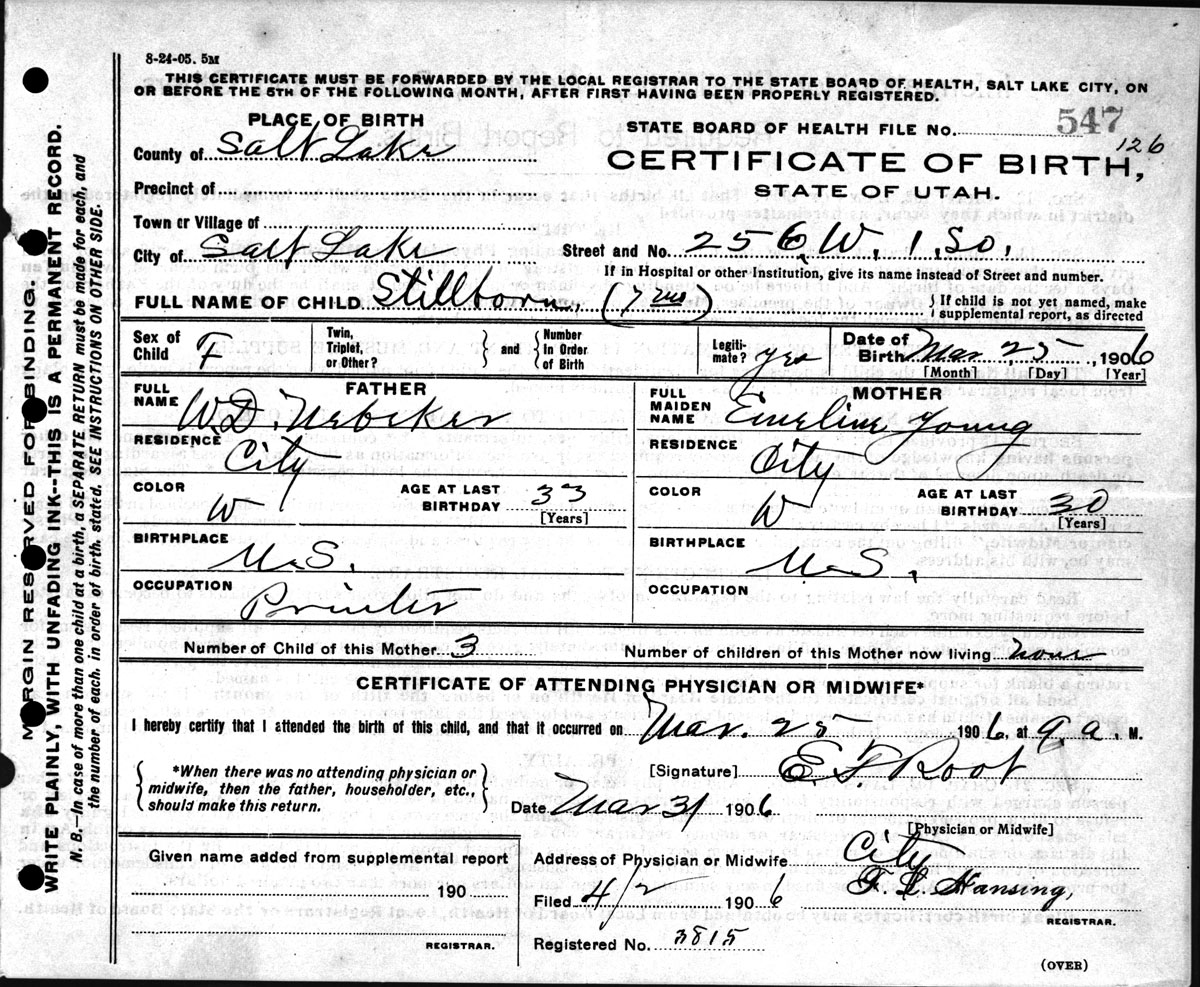 8-24-05. 5M
THIS CERTIFICATE MUST BE FORWARDED BY THE LOCAL REGISTRAR TO THE STATE BOARD OF HEALTH, SALT LAKE CITY, ON
OR BEFORE THE 5TH OF THE FOLLOWING MONTH, AFTER FIRST HAVING BEEN PROPERLY REGISTERED.
MARGIN RESERVED FOR BINDING.
WRITE PLAINLY, WITH UNFADING INK--THIS IS A PERMANENT RECORD.
N. B.—In case of more than one child at a birth, a SEPARATE RETURN must be made for each, and
the number of each, in order of birth, stated. SEE INSTRUCTIONS ON OTHER SIDE.
PLACE OF BIRTH
County of Salt Lake
Precinct of
Town or Village of
City of Salt Lake
STATE BOARD OF HEALTH FILE NO. 547
126
CERTIFICATE OF BIRTH,
STATE OF UTAH.
Street and No. 256 W. 1. So.
If in Hospital or other Institution, give its name instead of Street and number.
FULL NAME OF CHILD Stillborn, (7 mos) } If child is not yet named, make
supplemental report, as directed
Sex of Child F
Twin, Triplet, or Other? } and { Number In Order of Birth
Legitimate? yes
Date of Birth Mar 25, 1906
[Month] [Day] [Year]
FATHER
FULL NAME W. D. Nebeker
RESIDENCE City
COLOR W
AGE AT LAST BIRTHDAY 33
[Years]
BIRTHPLACE U.S.
OCCUPATION Printer
MOTHER
FULL MAIDEN NAME Emeline Young
RESIDENCE City
COLOR W
AGE AT LAST BIRTHDAY 30
[Years]
BIRTHPLACE U.S.
OCCUPATION
Number of Child of this Mother 3
Number of children of this Mother now living none
CERTIFICATE OF ATTENDING PHYSICIAN OR MIDWIFE*
I hereby certify that I attended the birth of this child, and that it occurred on Mar. 25 1906, at 9 a. M.
*When there was no attending physician or
midwife, then the father, householder, etc.,
should make this return.
[Signature] E. F. Root
Date Mar 31 1906
[Physician or Midwife]
Given name added from supplemental report
190
REGISTRAR.
Address of Physician or Midwife City
Filed 4/2 1906
Hansing,
REGISTRAR.
Registered No. 3815
(OVER)